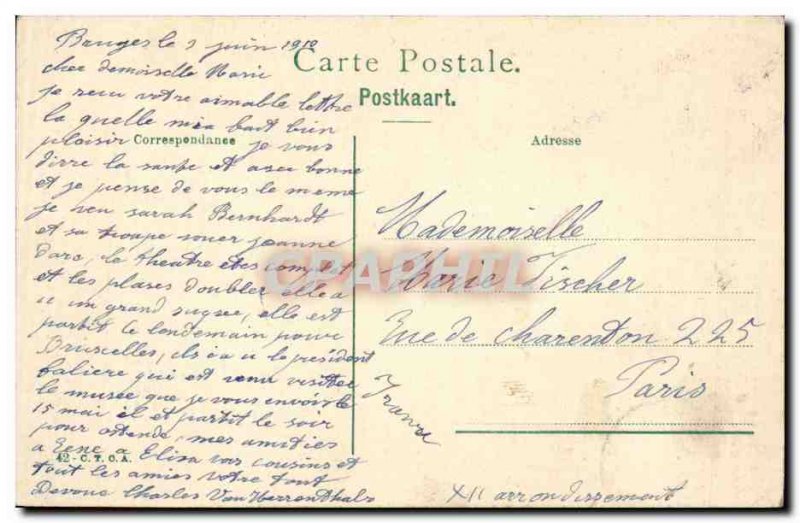 Bruges le 9 juin 1910
cher demoiselle Marie
je recu votre aimable lettre
la quelle mia bait bien
plaisir je vous
dirre la sante et asez bonne
et je pense de vous le meme
je veu sarah Bernhardt
et sa troupe jouer jeanne
Darc, le theatre etes complet
et les plases doubler, elle a
u un grand sugsee, elle est
partit le lendemain pour
Bruxcelles, ils on u le president
faliere qui est venu visitee
le musee que je vous envois le
15 mai il et partit le soir
pour ostende, mes amities
a Eene a Elisa vos cousins et
tout les amies votre tout
Devoue Charles Van Herrenthals
Carte Postale.
Postkaart.
Correspondance
Adresse
Mademoiselle
Marie Fischer
Rue de charenton 225
Paris
France
XII arrondissement
42-C.T.C.A.
CPAPHIL